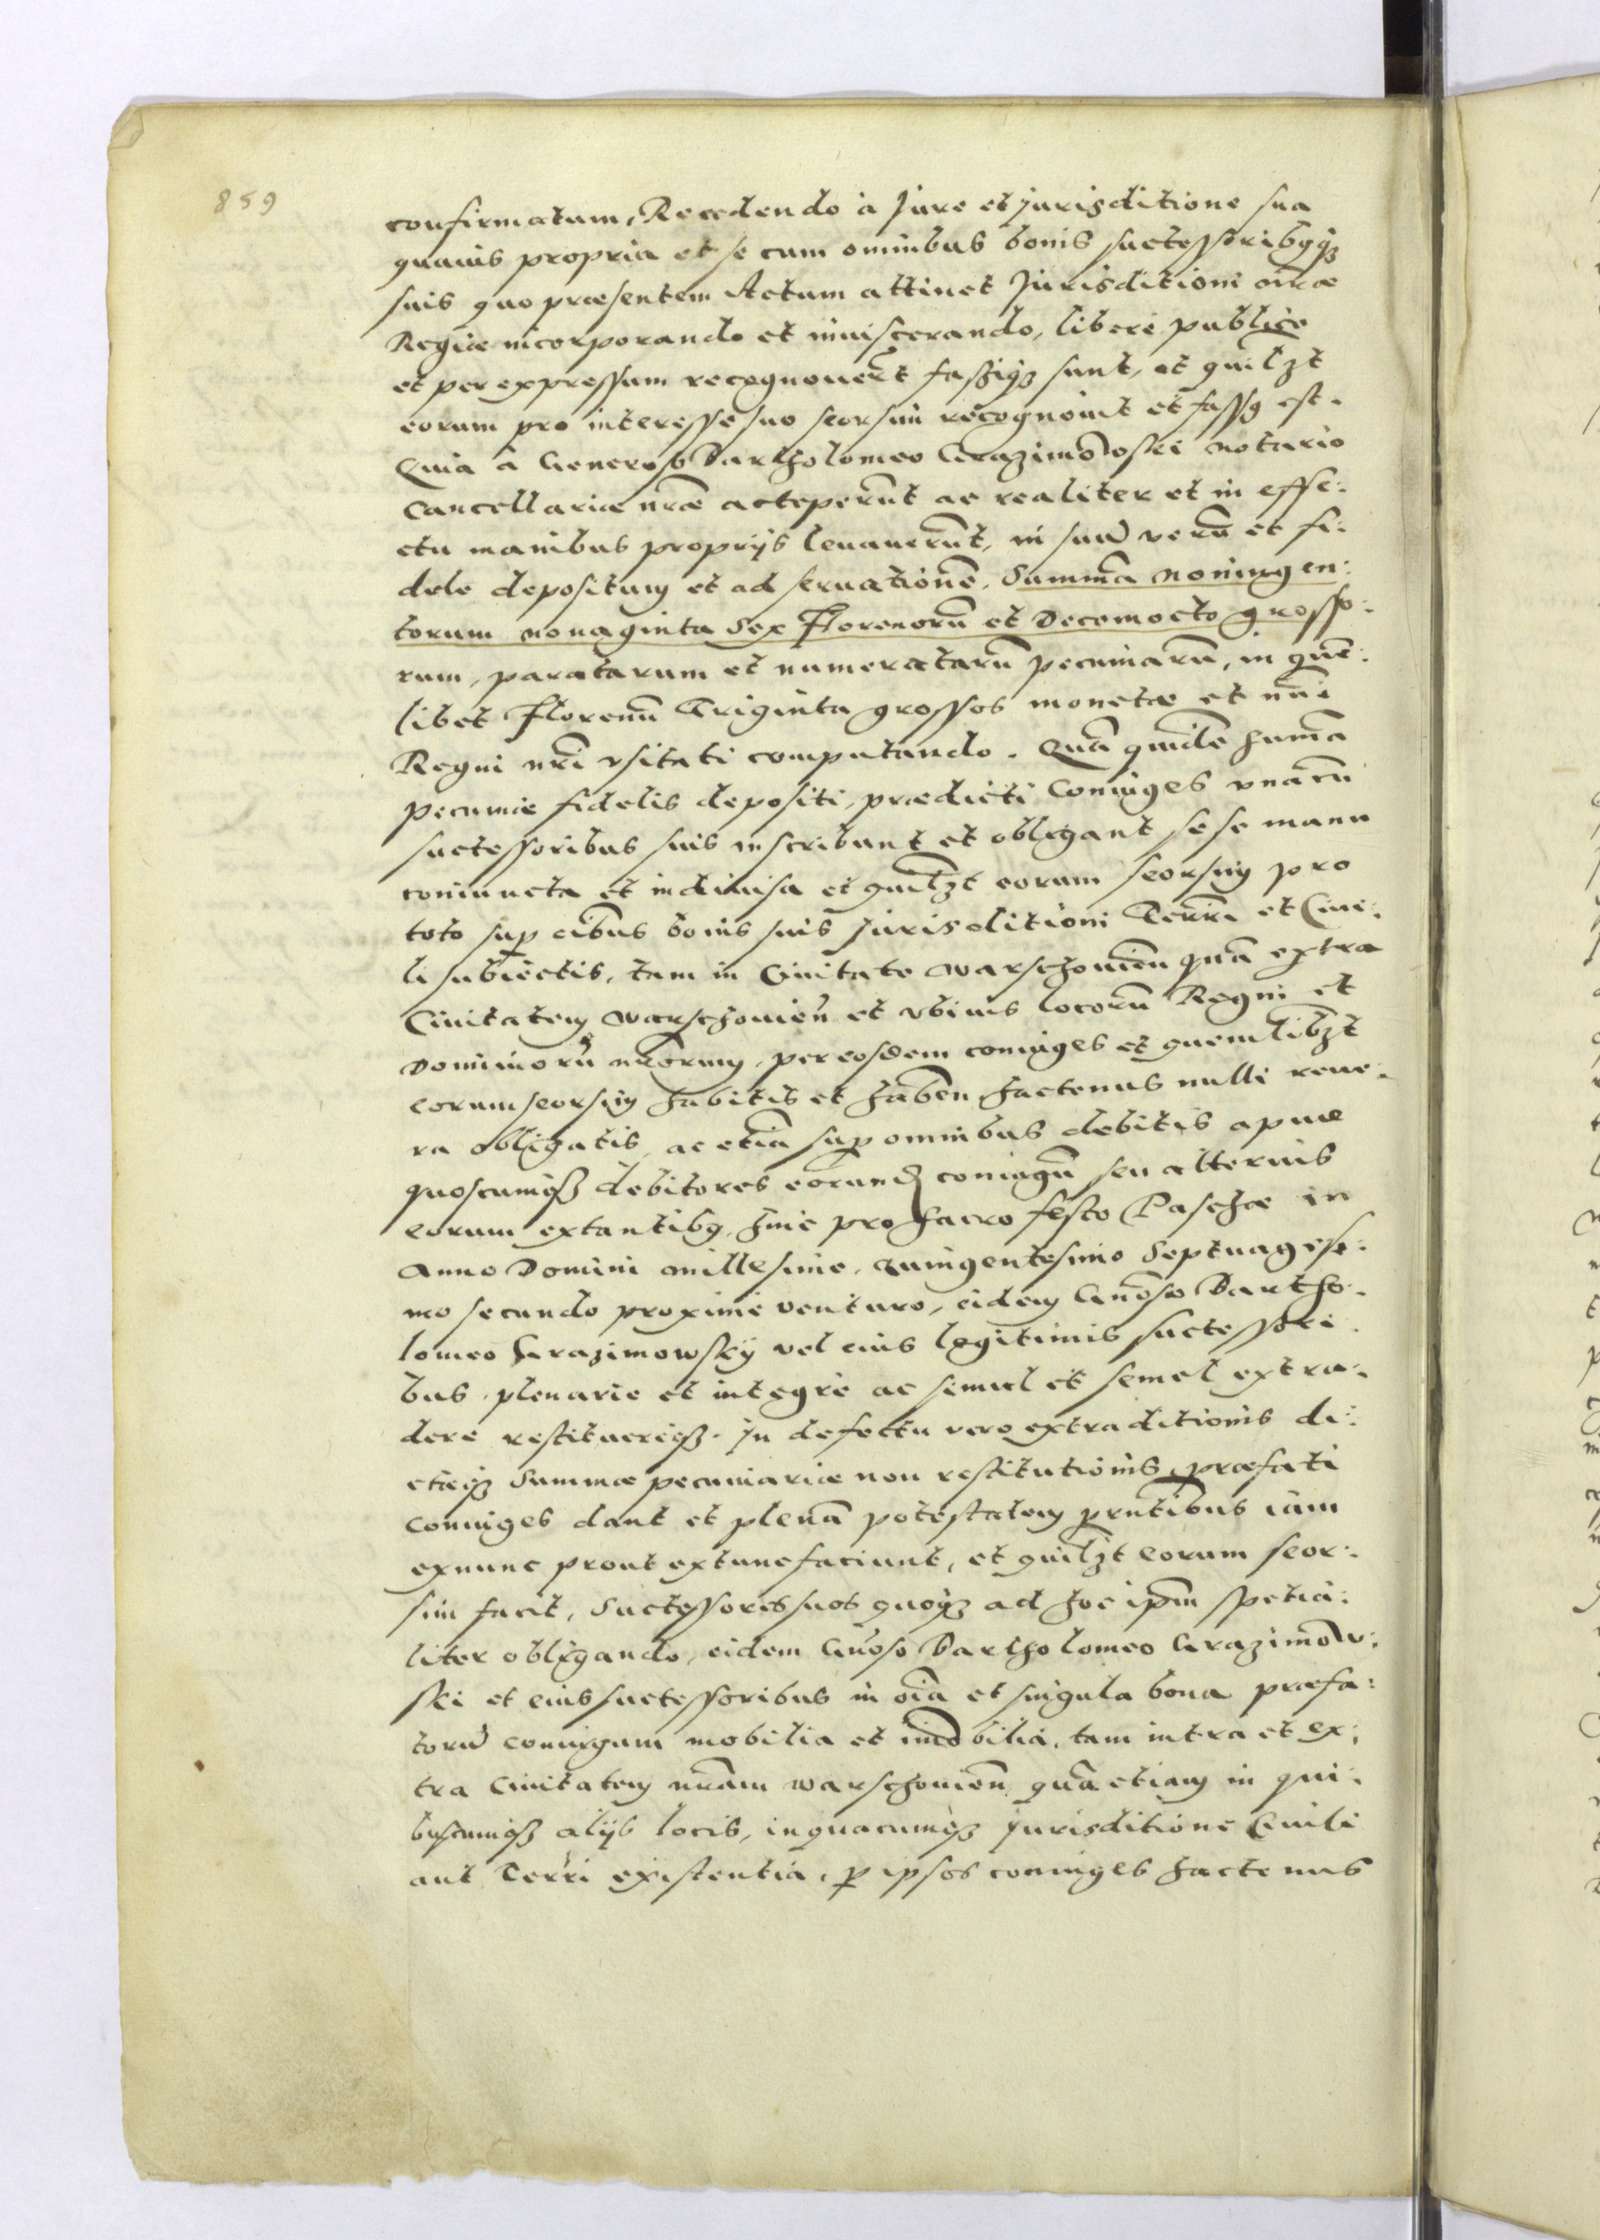 859
confirmatum, Recedendo à Jure et jurisditione sua
quauis propria et se cum omnibus bonis suctessoribq̃ꝫ
suis quo præsentem Actum attinet Jurisditioni nr̃æ
Regiæ incorporando et inuiscerando, liberè publicè
et per expressum recognouer̃t fassiqꝫ sunt, et quilꝫt
eorum pro interesse suo seorsim recognouit et fassꝯ est.
Quia à Generoso Bartholomeo Grazimowski Notario
Cancellariæ nr̃æ acteper̃nt ac realiter et in effe:
ctu manibus proprijs leuauer̃nt, in suũ verũ et fi:
dele depositum et ad seruationẽ, Summã Noningen:
torum nonaginta Sex Florenorũ et Decemocto grosso:
rum, paratarum et numeratarũ pecuniarũ, in quẽ:
libet Florenũ Triginta grossos monetæ et nũi
Regni nr̃i vsitati computando. Quã quidẽ sum̃ã
Pecuniæ fidelis depositi, prædicti Coniuges vnacũ
suctessoribus suis inscribunt et obligant sese manu
coniuncta et indiuisa et quilꝫt eorum seorsim pro
toto sup̱ oĩbus bonis suis Jurisditioni Terr̃i et Ciui:
li subiectis, tam in Ciuitate Warschouieñ quã extra
Ciuitatem Warschouieñ et vbiuis locorũ Regni et
Dominiorũ nr̃orum, per eosdem coniuges et quemlibꝫt
eorum seorsim habitis et habeñ hactenus nulli reue:
ra obligatis, ac etiã sup̱ omnibus debitis apud
quoscumqꝫ debitores eorund̃ coniugũ seu alterius
eorum extantibꝯ, hinc pro sacro festo Paschæ in
Anno Domini Millesimo, Quingentesimo Septuagesi:
mo secundo proximè venturo, eidem Gñoso Bartho:
lomeo Grazimowskij vel eius legitimis suctessori:
bus, plenariè et integrè ac simul et semel extra:
dere restituereqꝫ. In defectu vero extraditionis di:
ctæqꝫ Summæ pecuniariæ non restitutionis, præfati
Coniuges dant et plenã potestatem p̱rñtibus iam
exnunc prout extunc faciunt, et quilꝫt eorum seor:
sim facit, Suctessores suos quoqꝫ ad hoc ip̃m spetia:
liter obligando, eidem Gñoso Bartholomeo Grazimow:
ski et eius suctessoribus in oĩa et singula bona præfa:
torũ coniugum mobilia et im̃obilia, tam intra et ex:
tra Ciuitatem nr̃am Warschouieñ quã etiam in qui:
buscumqꝫ alijs locis, inquacumqꝫ Jurisditione Ciuili
aut Terr̃i existentia, p̱ ipsos coniuges hactenus